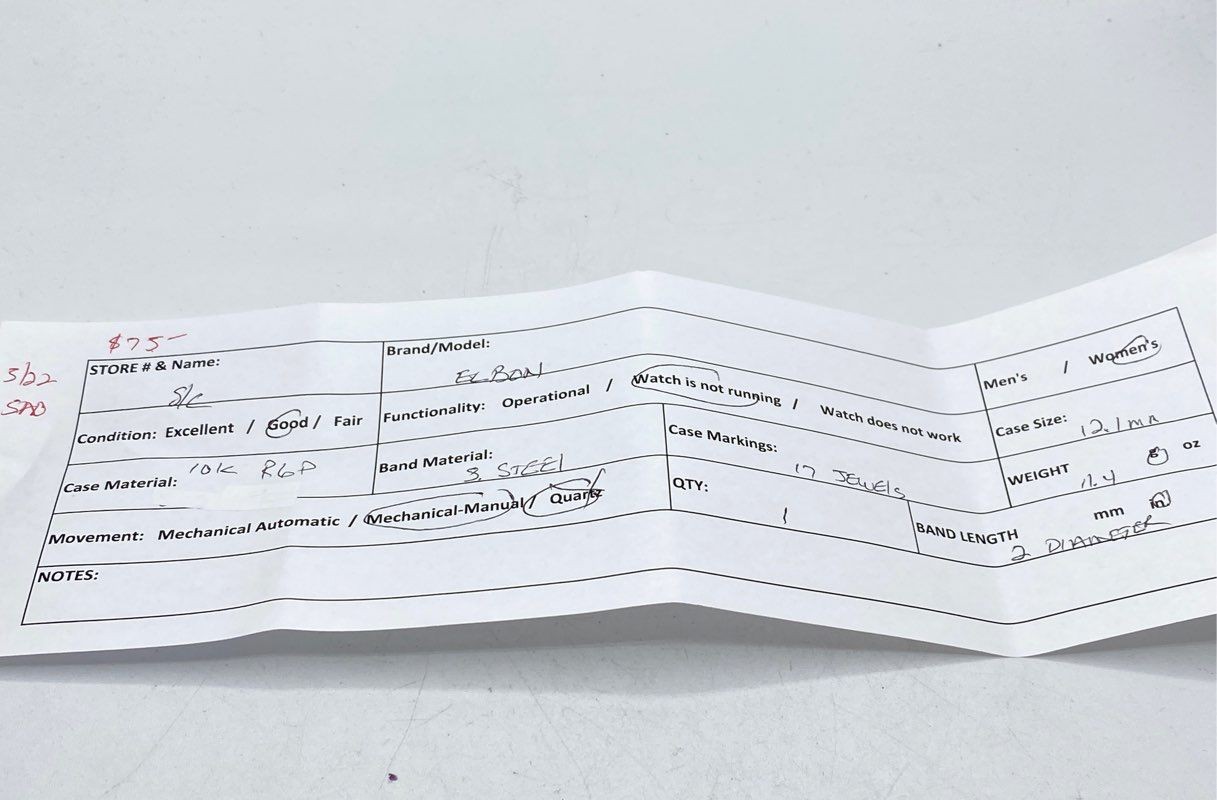 $75-
5/22
SAD
STORE # & Name: S/C
Brand/Model: ELBON
Men's / Women's
Condition: Excellent / Good / Fair
Functionality: Operational / Watch is not running / Watch does not work
Case Size: 12.1 mm
Case Material: 10K RGP
Band Material: S. STEEL
Case Markings: 17 JEWELS
WEIGHT 11.4 g oz
Movement: Mechanical Automatic / Mechanical-Manual / Quartz
QTY: 1
BAND LENGTH mm in
2 DIAMETER
NOTES: